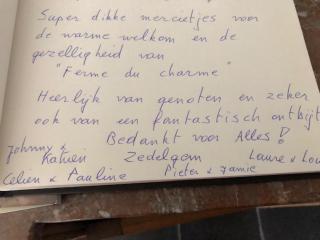 Super dikke mercietjes voor
de warme welkom en de
gezelligheid van
"Ferme du charme"
Heerlijk van genoten en zeker
ook van een fantastisch ontbijt
Bedankt voor Alles!
Johnny &
Katrien Zedelgem Laure &
Celien & Pauline Pieter & Jamie